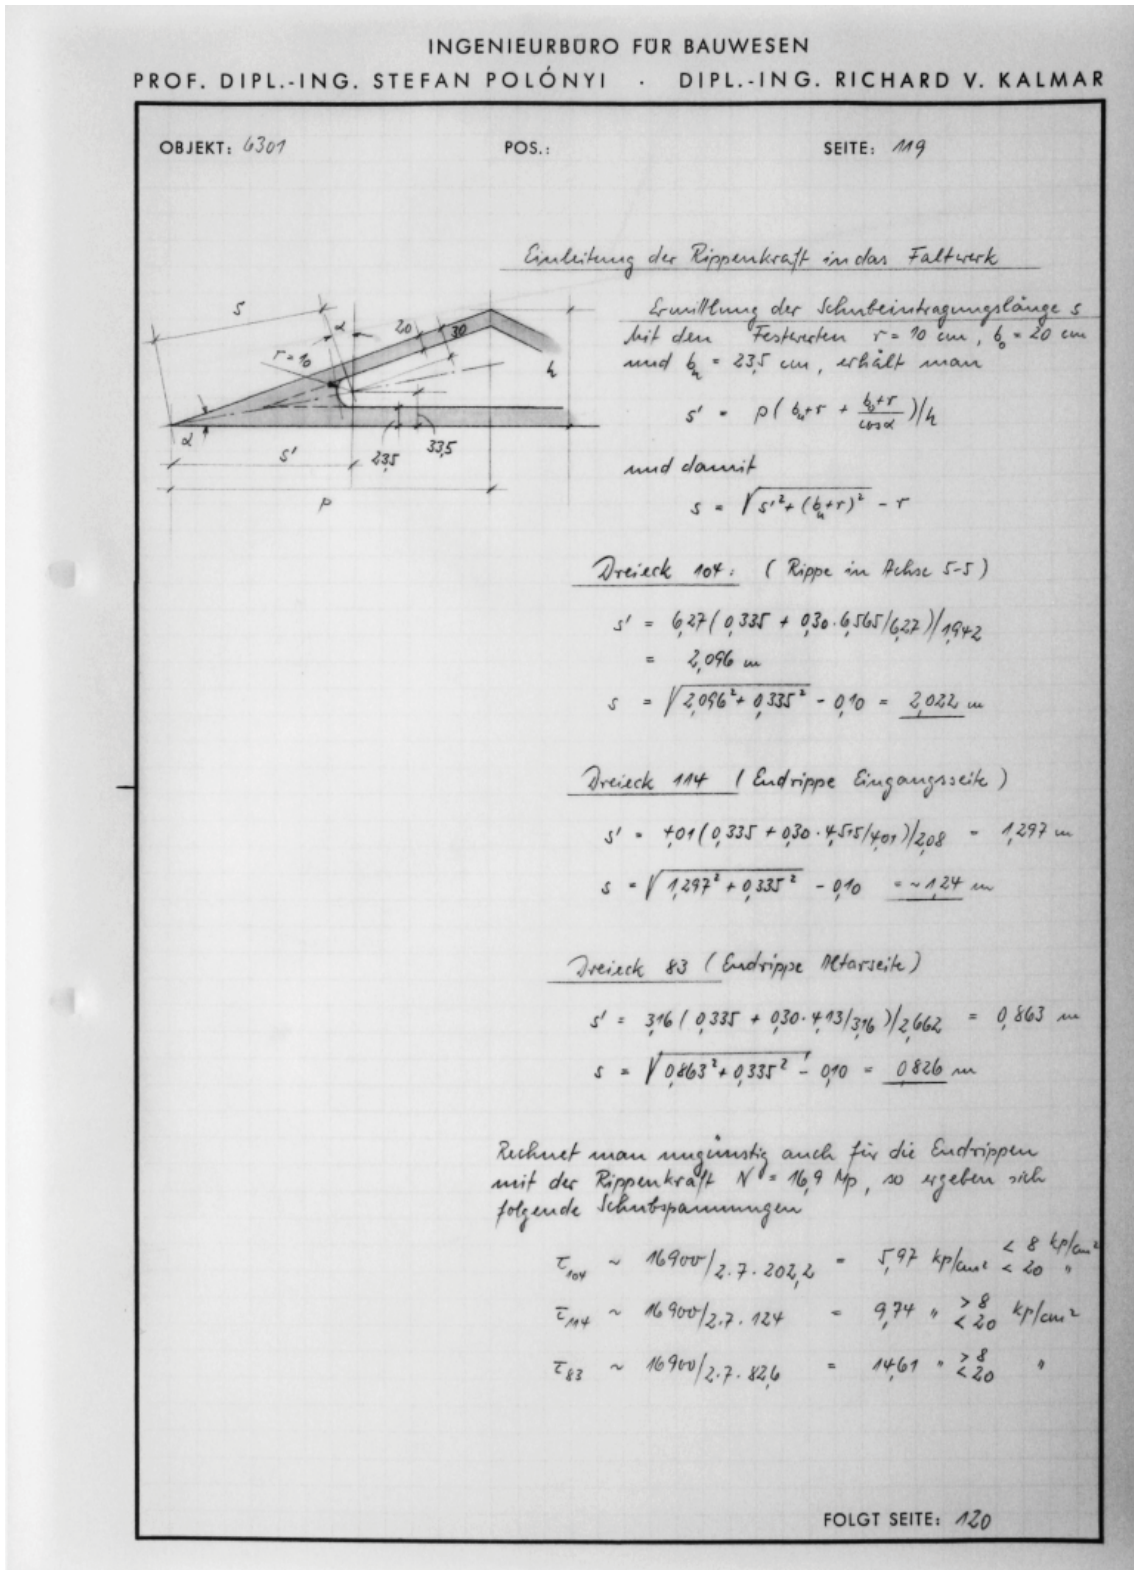 INGENIEURBÜRO FÜR BAUWESEN
PROF. DIPL.-ING. STEFAN POLÓNYI · DIPL.-ING. RICHARD V. KALMAR
OBJEKT: 6301 POS.: SEITE: 119
Einleitung der Rippenkraft in das Faltwerk
Ermittlung der Schubeintragungslänge s
Mit den Festwerten r = 10 cm, b₀ = 20 cm
und bᵤ = 23,5 cm, erhält man
s' = p( bᵤ+r + (b₀+r)/cosα )/h
und damit
s = √(s'² + (bᵤ+r)²) - r
s
α
20
30
r = 10
h
α
s'
23,5
33,5
p
Dreieck 104: ( Rippe in Achse 5-5 )
s' = 6,27 ( 0,335 + 0,30 · 6,565/6,27 )/1,942
= 2,096 m
s = √(2,096² + 0,335²) - 0,10 = 2,022 m
Dreieck 114 ( Endrippe Eingangsseite )
s' = 4,01 ( 0,335 + 0,30 · 4,515/4,01 )/2,08 = 1,297 m
s = √(1,297² + 0,335²) - 0,10 = ~ 1,24 m
Dreieck 83 ( Endrippe Altarseite )
s' = 3,16 ( 0,335 + 0,30 · 4,13/3,16 )/2,662 = 0,863 m
s = √(0,863² + 0,335²) - 0,10 = 0,826 m
Rechnet man ungünstig auch für die Endrippen
mit der Rippenkraft N = 16,9 Mp, so ergeben sich
folgende Schubspannungen
τ₁₀₄ ~ 16900/2·7·202,2 = 5,97 kp/cm² < 8 kp/cm² < 20 "
τ₁₁₄ ~ 16900/2·7·124 = 9,74 " > 8 < 20 kp/cm²
τ₈₃ ~ 16900/2·7·82,6 = 14,61 " > 8 < 20 "
FOLGT SEITE: 120